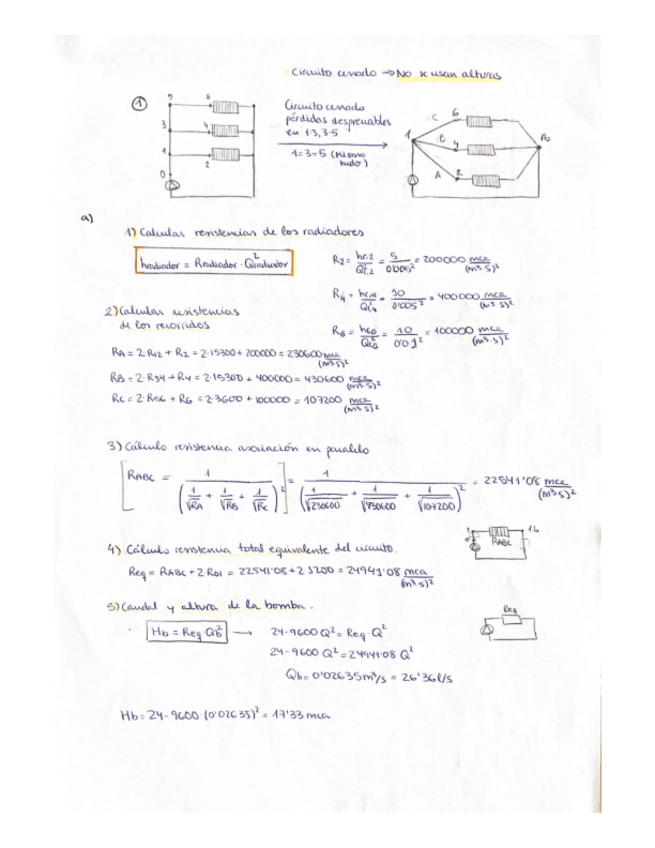 Circuito cerrado → No se usan alturas
①
5 6
3 4
1 2
0
Circuito cerrado
pérdidas despreciables
en 1-3, 3-5
1=3=5 (Mismo
nudo)
1 C 6
B 4
A 2
1b
a)
1) Calcular resistencias de los radiadores
hradiador = Rradiador · Q²radiador
R2 = hr,2 / Q²r,2 = 5 / 0'005² = 200000 mca / (m³·s)²
R4 = hr,4 / Q²r,4 = 10 / 0'005² = 400000 mca / (m³·s)²
R6 = hr6 / Q²r6 = 10 / 0'01² = 100000 mca / (m³·s)²
2) Calcular resistencias
de los recorridos
RA = 2·R12 + R2 = 2·15300 + 200000 = 230600 mca / (m³·s)²
RB = 2·R34 + R4 = 2·15300 + 400000 = 430600 mca / (m³·s)²
RC = 2·R56 + R6 = 2·3600 + 100000 = 107200 mca / (m³·s)²
3) Cálculo resistencia asociación en paralelo
[RABC = 1 / (1/√RA + 1/√RB + 1/√RC)²] = 1 / (1/√230600 + 1/√430600 + 1/√107200)² = 22541'08 mca / (m³·s)²
1 1b
RABC
4) Cálculo resistencia total equivalente del circuito.
Req = RABC + 2 R01 = 22541'08 + 2·1200 = 24941'08 mca / (m³·s)²
5) Caudal y altura de la bomba.
Req
Hb = Req Qb² → 24-9600 Q² = Req · Q²
24-9600 Q² = 24941'08 Q²
Qb = 0'02635 m³/s = 26'36 l/s
Hb = 24-9600 (0'02635)² = 17'33 mca